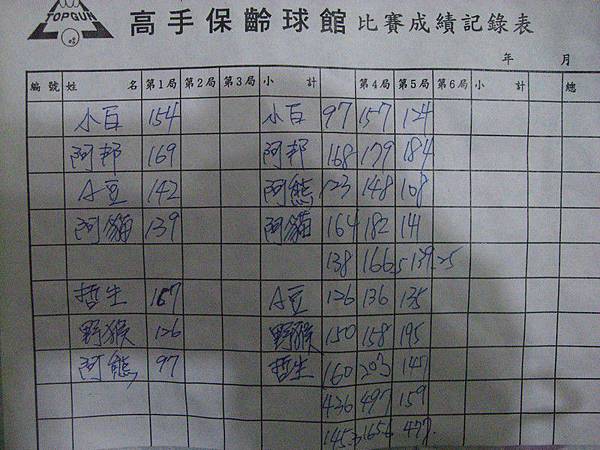 TOPGUN
高手保齡球館比賽成績記錄表
年 月
編號 姓 名 第1局 第2局 第3局 小 計 第4局 第5局 第6局 小 計 總
小白 154 小白 97 157 124
阿邦 169 阿邦 168 179 184
A豆 142 阿熊 123 148 108
阿貓 139 阿貓 164 182 141
138 166.5 139.25
哲生 167 A豆 126 136 135
野猴 126 野猴 150 158 195
阿熊 97 哲生 160 203 147
436 497 159
145.3 165.6 477